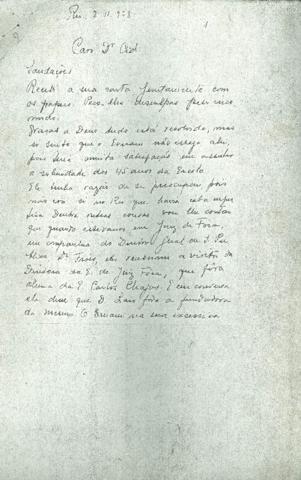 Rio, 2.11.978
1
Caro Dr
Saudações
Recebi a sua carta juntamente com
os papeis. Peço-lhe desculpas pela
Graças a Deus tudo está resolvido, mas
eu sinto que o Ernani não esteja ahi,
pois seria muita satisfação em assistir
a solenidade dos 45 anos da Escola
Ele tinha razão de se preocupar pois
não era só no Rio que havia esta
Dentre outras cousas vou lhe contar
que quando estivemos em Juiz de Fora,
em companhia do Diretor Geral da S.
Dr. Fróis, eles receberam a visita da
Diretora da E. de Juiz Fora, que fôra
aluna da E. Carlos Chagas. E em conversa
ela disse que D. Laís fôra a fundadora
da mesma. O Ernani na sua excessiva